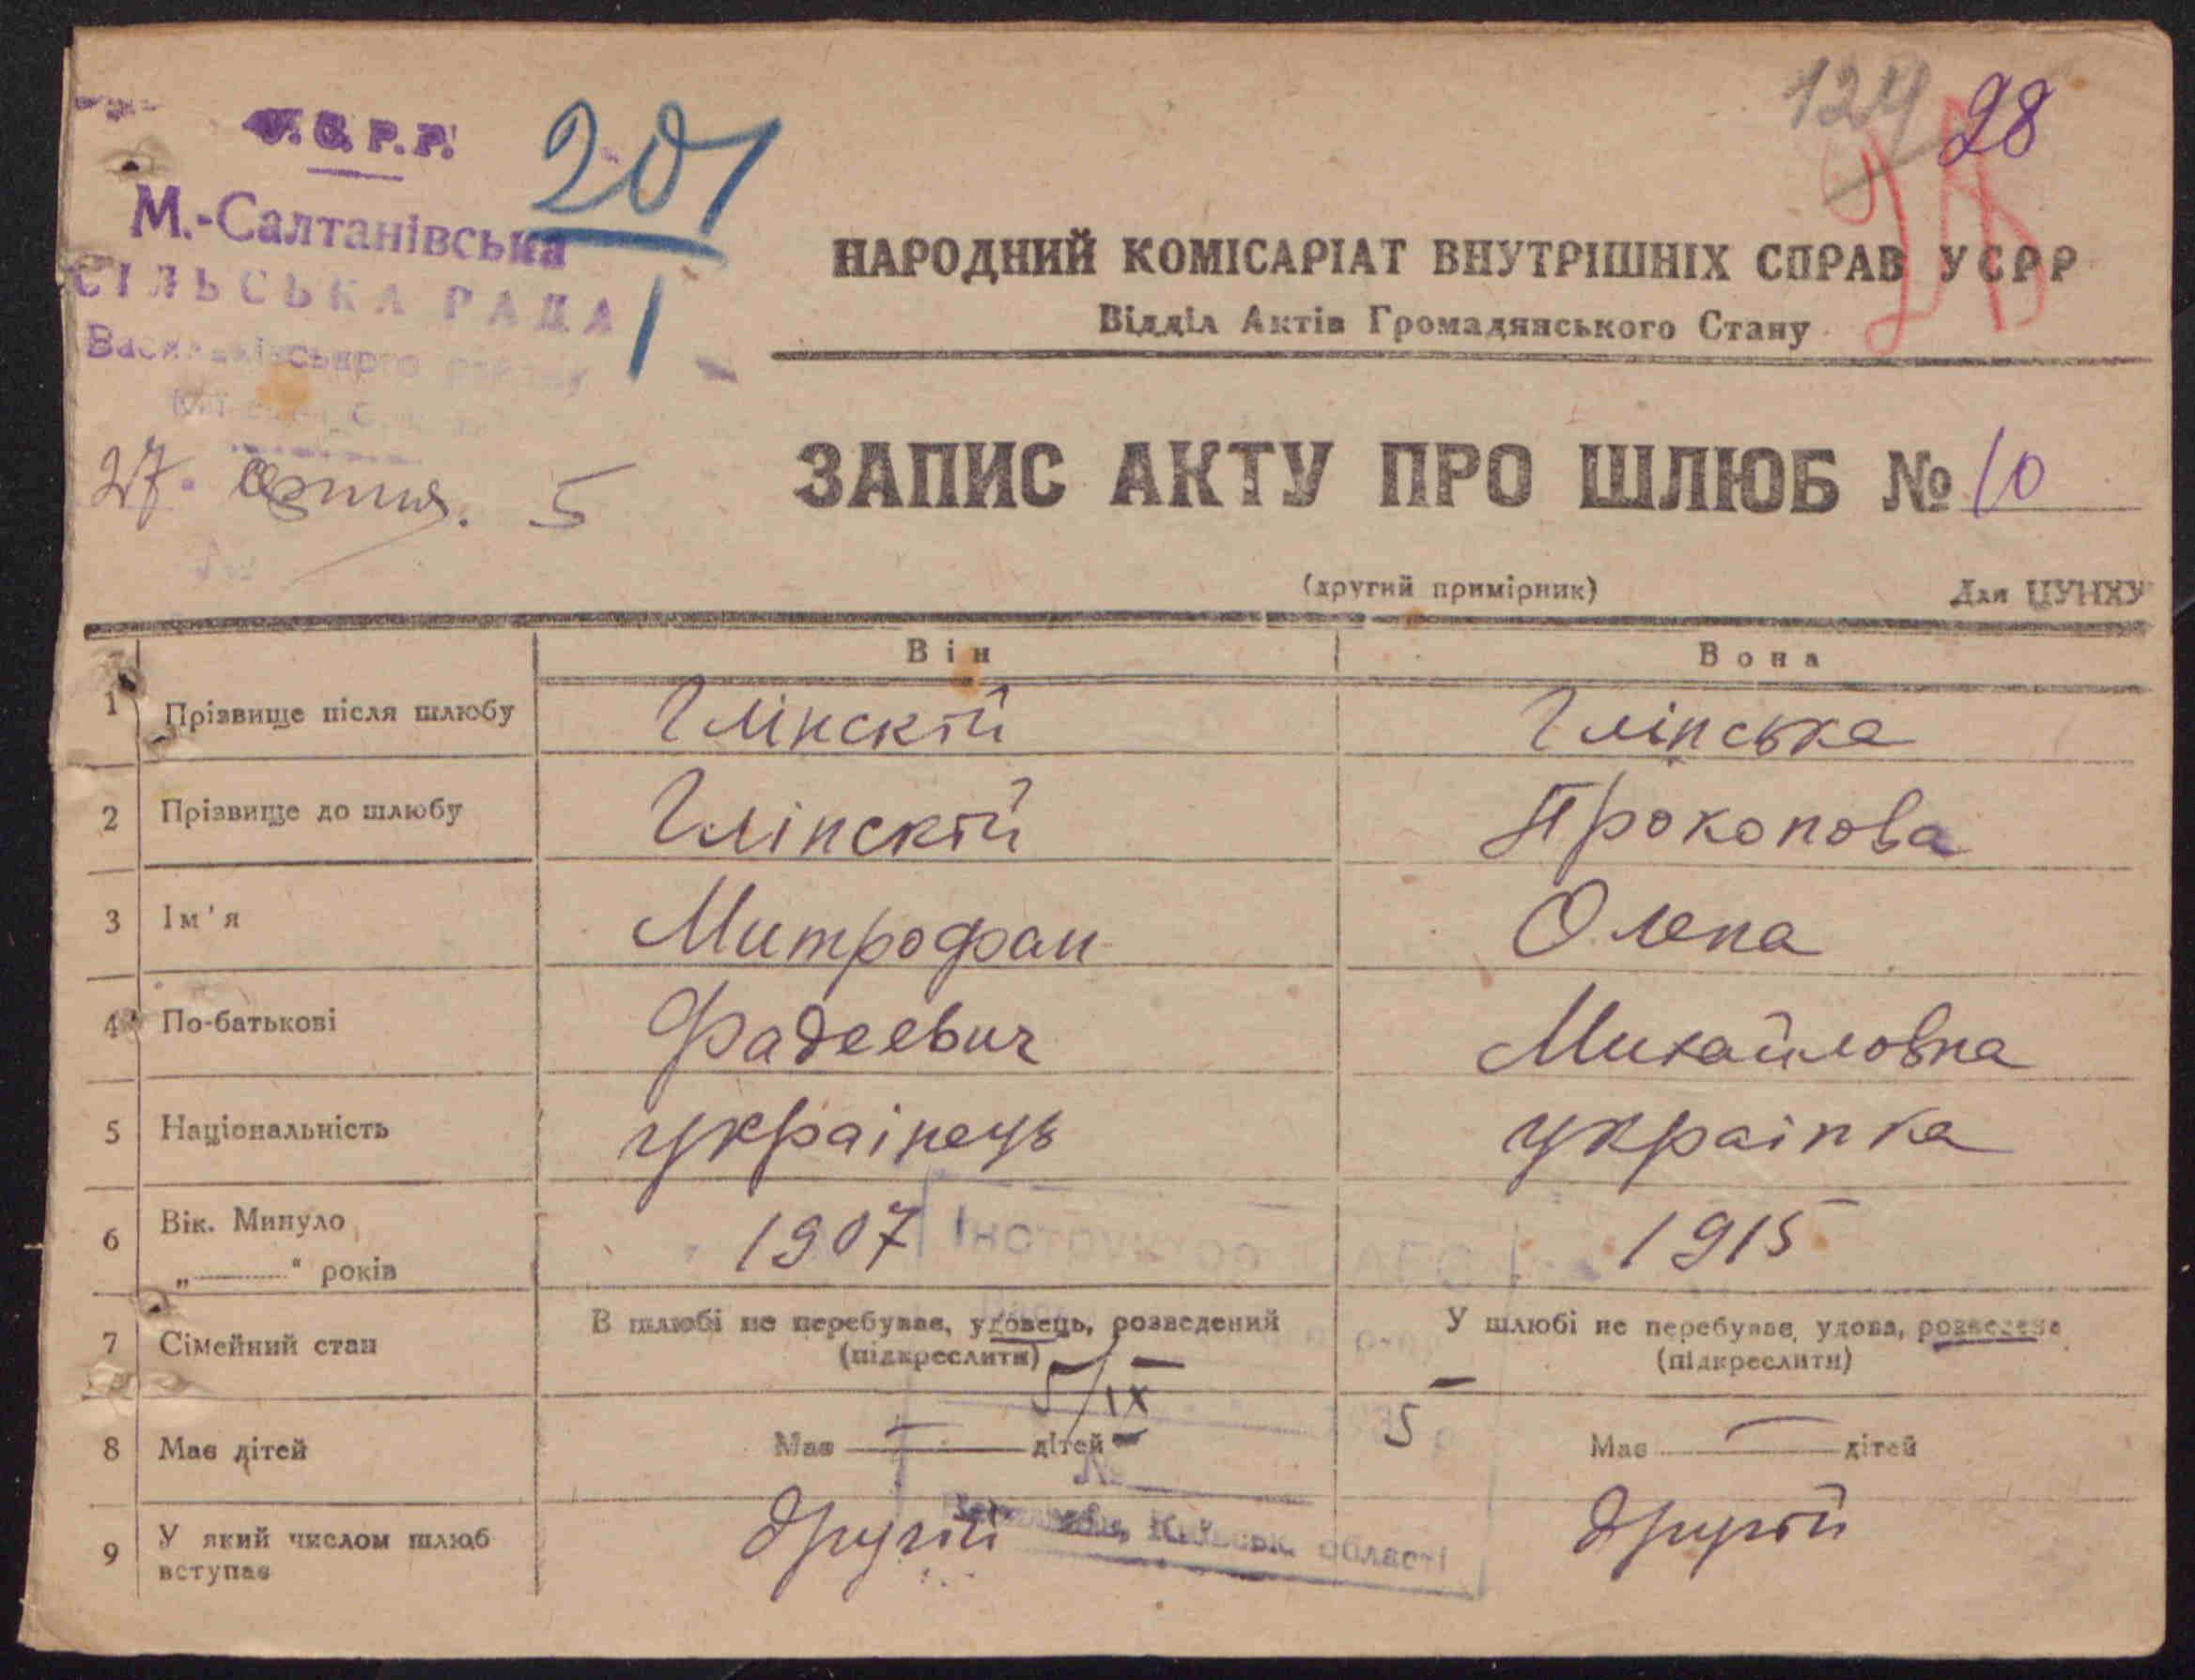 У.С.Р.Р.
М.-Салтанівська
СІЛЬСЬКА РАДА
Васильківського району
201
1
27. 5
124 28
НАРОДНИЙ КОМІСАРІАТ ВНУТРІШНІХ СПРАВ УСРР
Відділ Актів Громадянського Стану
ЗАПИС АКТУ ПРО ШЛЮБ № 10
(другий примірник) Для ЦУНХУ
Він Вона
1 Прізвище після шлюбу Глінскій Глінська
2 Прізвище до шлюбу Глінскій Прокопова
3 Ім'я Митрофан Олена
4 По-батькові Фадеевич Михайловна
5 Національність українець українка
6 Вік. Минуло 1907 1915
„ “ років
7 Сімейний стан В шлюбі не перебуває, удовець, розведений У шлюбі не перебуває, удова, розведена
(підкреслити) (підкреслити)
5/IX 5
8 Має дітей Має — дітей Має — дітей
№
9 У який числом шлюб вступає другій другій
Київськ. області